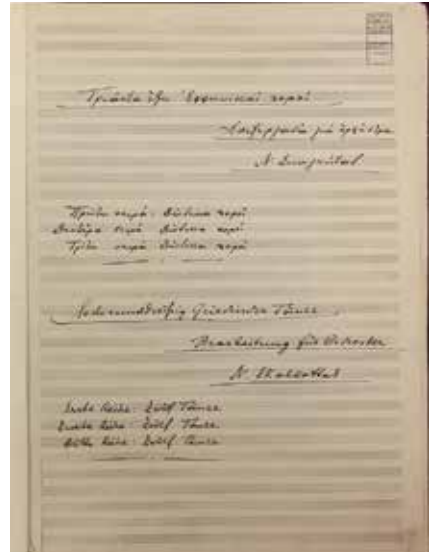 Τριάντα έξη Ἑλληνικοί χοροί
Ἐπεξεργασία γιά ὀρχήστρα
Ν. Σκαλκώτας
Πρώτη σειρά: Δώδεκα χοροί
Δευτέρα σειρά Δώδεκα χοροί
Τρίτη σειρά Δώδεκα χοροί
Sechsunddreißig Griechische Tänze
Bearbeitung für Orchester
N. Skalkottas
Erste Reihe: Zwölf Tänze
Zweite Reihe: Zwölf Tänze
Dritte Reihe: Zwölf Tänze